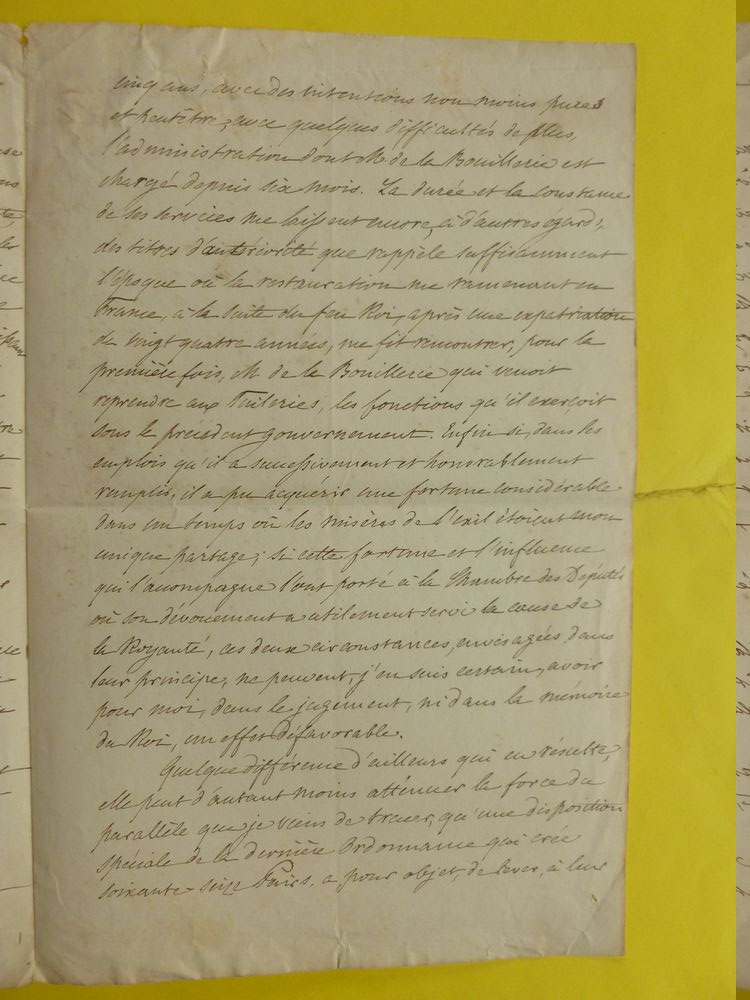 cinq ans, avec des intentions non moins pures
et peutêtre, avec quelques difficultés de plus,
l'administration dont M. de la Bouillerie est
chargé depuis six mois. La durée et la constance
de ses services me laissent encore, à d'autres égards,
des titres d'antériorité que rappèle suffisamment
l'époque où la restauration me ramenant en
France, à la suite du feu Roi, après une expatriation
de vingt quatre années, me fit rencontrer, pour la
première fois, M. de la Bouillerie qui venoit
reprendre aux Tuileries, les fonctions qu'il exerçoit
sous le précédent gouvernement. Enfin si, dans les
emplois qu'il a successivement et honorablement
remplis, il a pu acquérir une fortune considérable
dans un temps où les misères de l'exil étoient mon
unique partage; si cette fortune et l'influence
qui l'accompagne l'ont porté à la Chambre des Députés
où son dévouement a utilement servi la cause de
la Royauté, ces deux circonstances, envisagées dans
leur principe, ne peuvent, j'en suis certain, avoir
pour moi, dans le jugement, ni dans la mémoire
du Roi, un effet défavorable.
Quelque différence d'ailleurs qui en résulte,
elle peut d'autant moins atténuer la force du
parallèle que je viens de tracer, qu'une disposition
spéciale de la dernière Ordonnance qui crée
soixante-seize Pairs, a pour objet, de lever, à leur